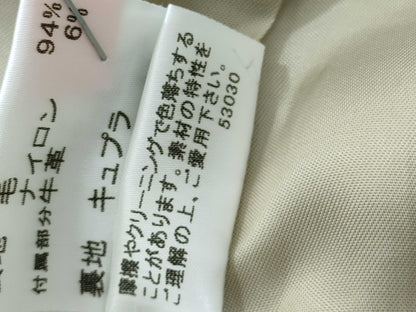 毛 94%
ナイロン 6%
付属部分牛革
裏地 キュプラ
摩擦やクリーニングで色落ちする
ことがあります。素材の特性を
ご理解の上、ご愛用下さい。
53030